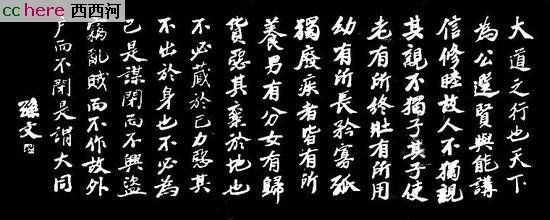 cchere 西西河
大道之行也天下
為公選賢與能講
信修睦故人不獨親
其親不獨子其子使
老有所終壯有所用
幼有所長矜寡孤
獨廢疾者皆有所
養男有分女有歸
貨惡其棄於地也
不必藏於己力惡其
不出於身也不必為
己是謀閉而不興盜
竊亂賊而不作故外
戶而不閉是謂大同
孫文